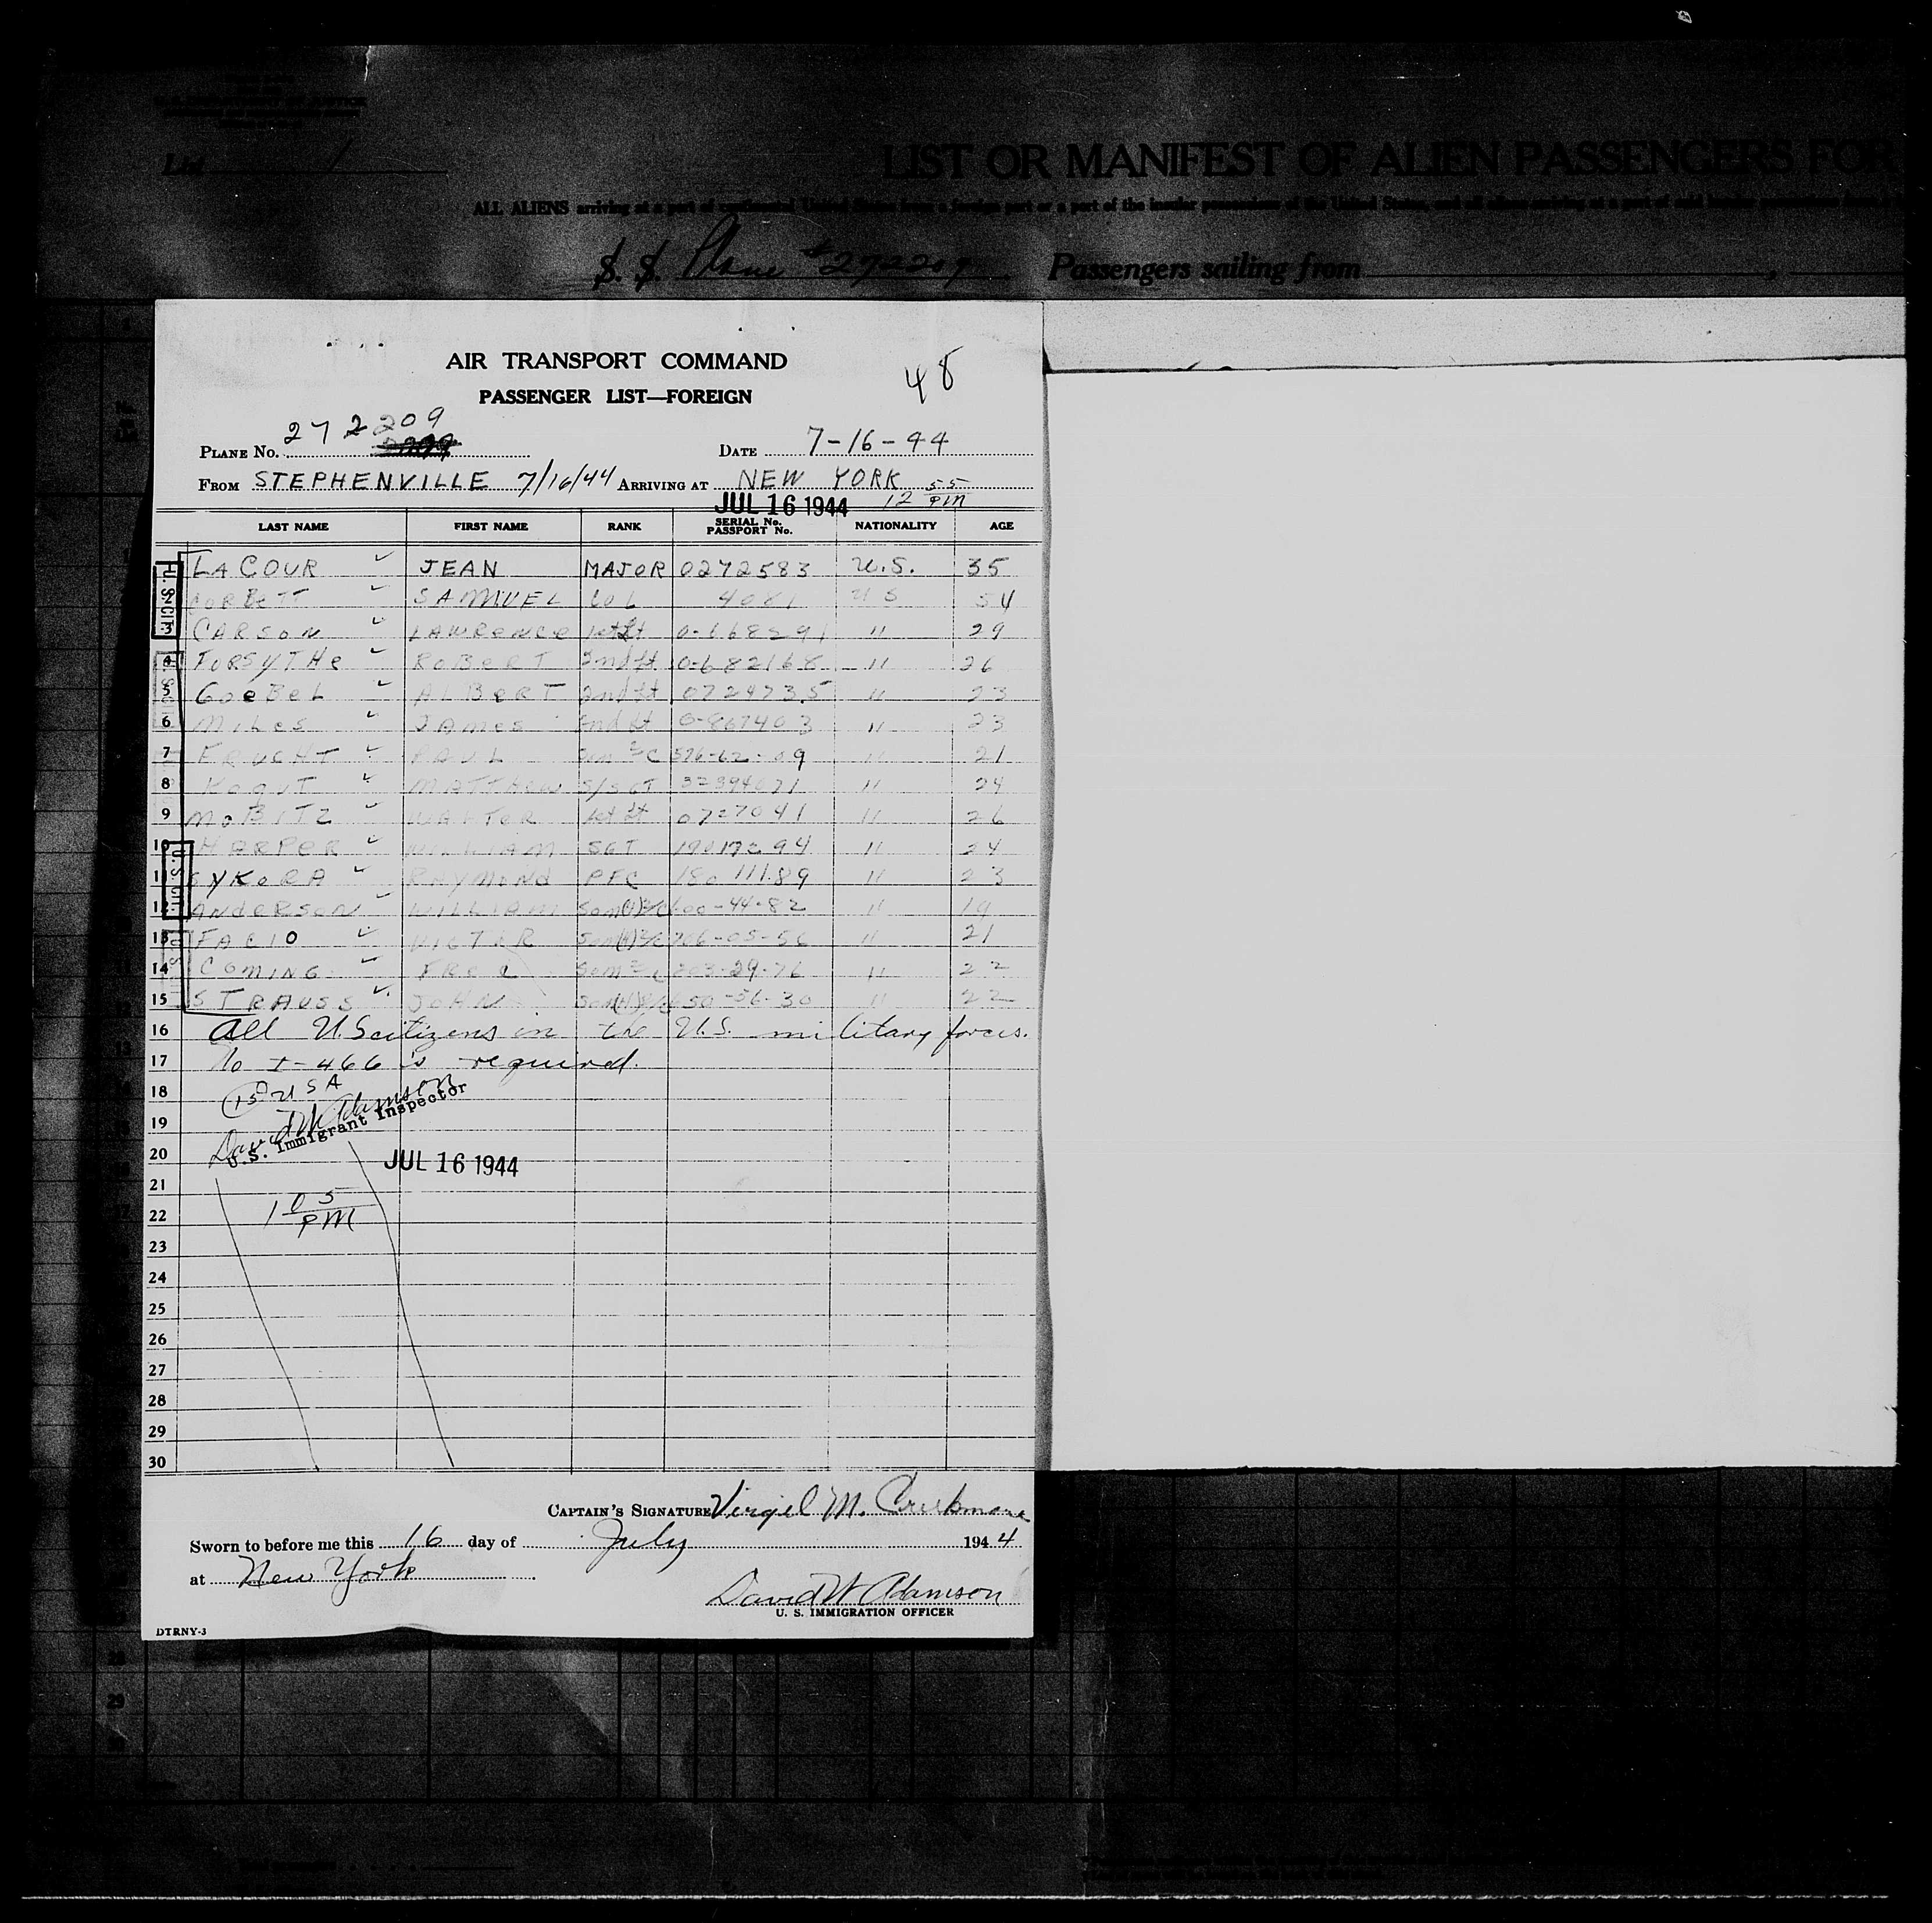 List 1
LIST OR MANIFEST OF ALIEN PASSENGERS FOR
ALL ALIENS arriving at a port of continental United States from a foreign port or a port of the insular possessions of the United States, and all aliens arriving at a port of said insular possessions from a
S. S. Plane #272209 Passengers sailing from
AIR TRANSPORT COMMAND
48
PASSENGER LIST—FOREIGN
PLANE No. 272209
DATE 7-16-44
FROM STEPHENVILLE 7/16/44 ARRIVING AT NEW YORK
JUL 16 1944 12 55 PM
LAST NAME FIRST NAME RANK SERIAL No. PASSPORT No. NATIONALITY AGE
LACOUR JEAN MAJOR 0272583 U.S. 35
CORBETT SAMUEL COL 4081 US 54
3 CARSON LAWRENCE 1st Lt 0-668291 " 29
4 FORSYTHE ROBERT 2nd Lt 0-682168 " 26
5 GOEBEL ALBERT 2nd Lt 0724735 " 23
6 MILES JAMES 2nd Lt 0-867403 " 23
7 FRUCHT PAUL Sm 2/C 576-62-09 " 21
8 KOGUT MATTHEW S/SGT 32394671 " 24
9 MOBITZ WALTER 1st Lt 0727041 " 26
10 HARPER WILLIAM SGT 19017294 " 24
11 SYKORA RAYMOND PFC 18011189 " 23
12 ANDERSON WILLIAM 600-44-82 " 19
13 FACIO VICTOR 706-05-56 " 21
14 COMING FRED 203-29-76 " 22
15 STRAUSS JOHN 650-56-30 " 22
16 All U.S citizens in the U.S. military forces.
17 No I-466 is required.
18 15 USA
19 David W Adamson
U.S. Immigrant Inspector
20 JUL 16 1944
21
22 1 05 PM
23
24
25
26
27
28
29
30
CAPTAIN'S SIGNATURE Virgil M.
Sworn to before me this 16 day of July 1944
at New York
David W Adamson
U. S. IMMIGRATION OFFICER
DTRNY-3
29